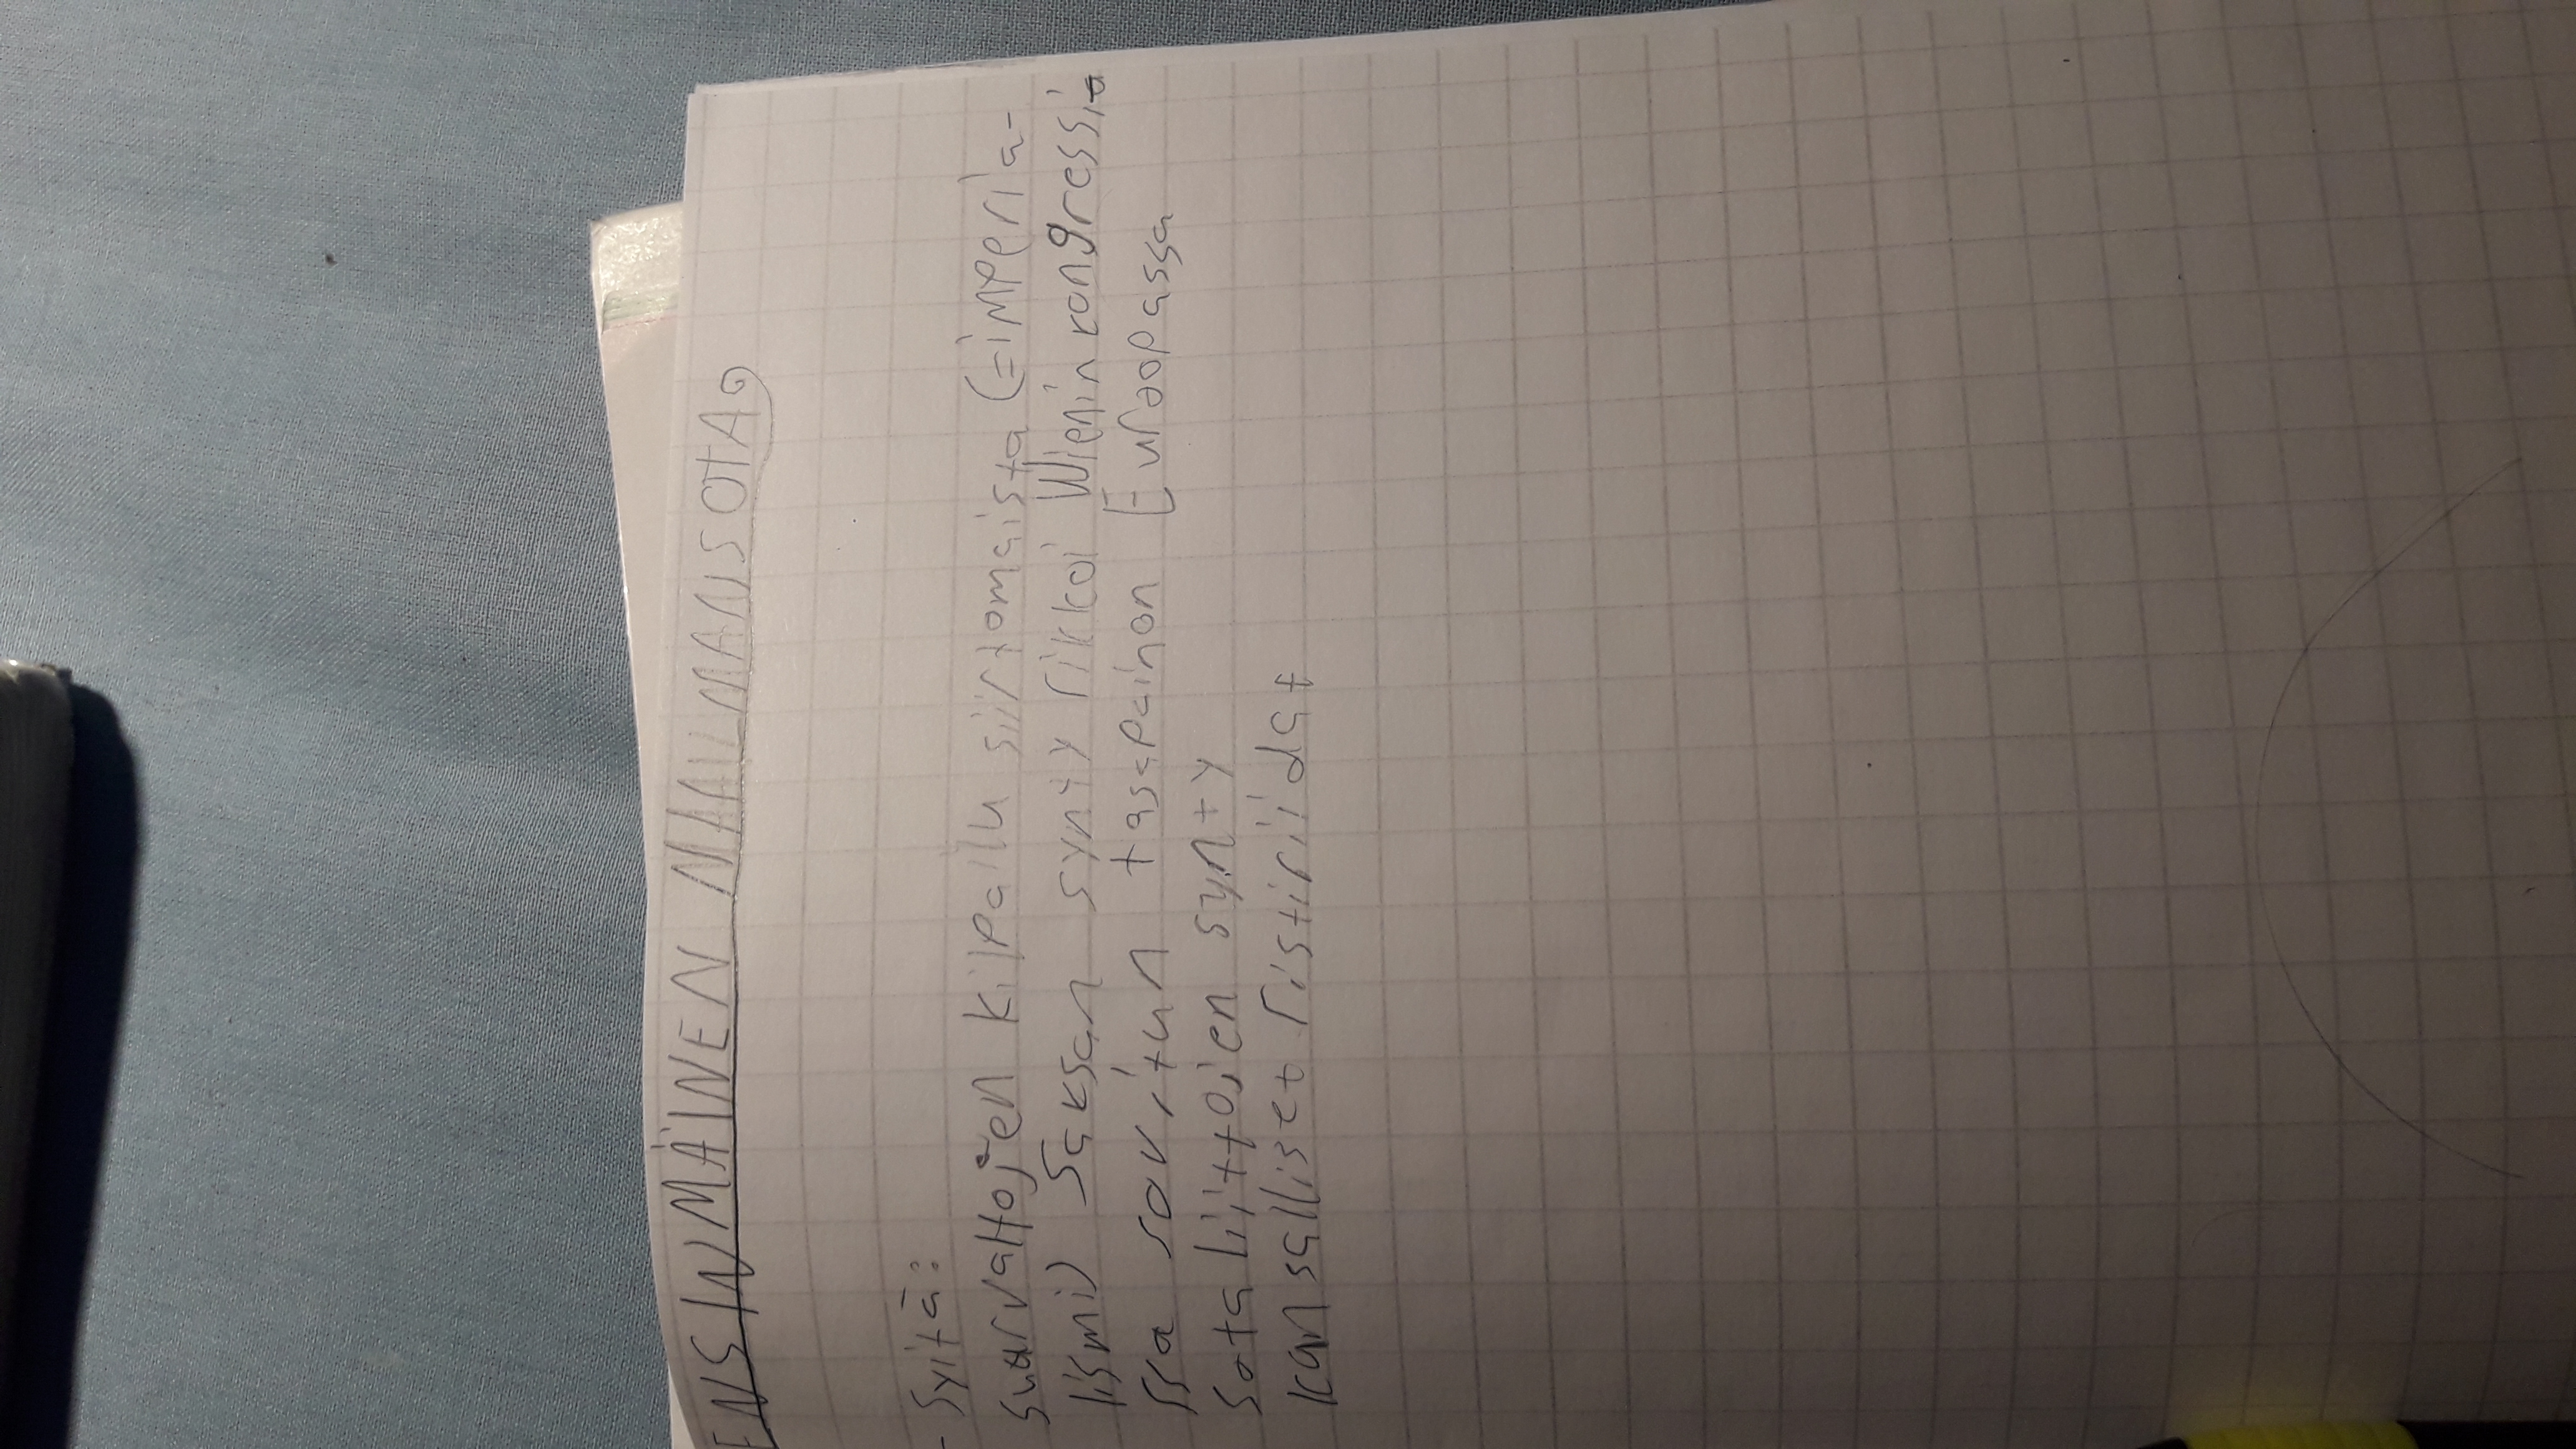 ENSIMMÄINEN MAAILMANSOTA
- Syitä:
suurvaltojen kilpailu siirtomaista (=imperia-
lismi) Saksan synty rikkoi Wienin kongressi
ssa sovitun tasapainon Euroopassa
Sotaliittojen synty
kansalliset ristiriidat